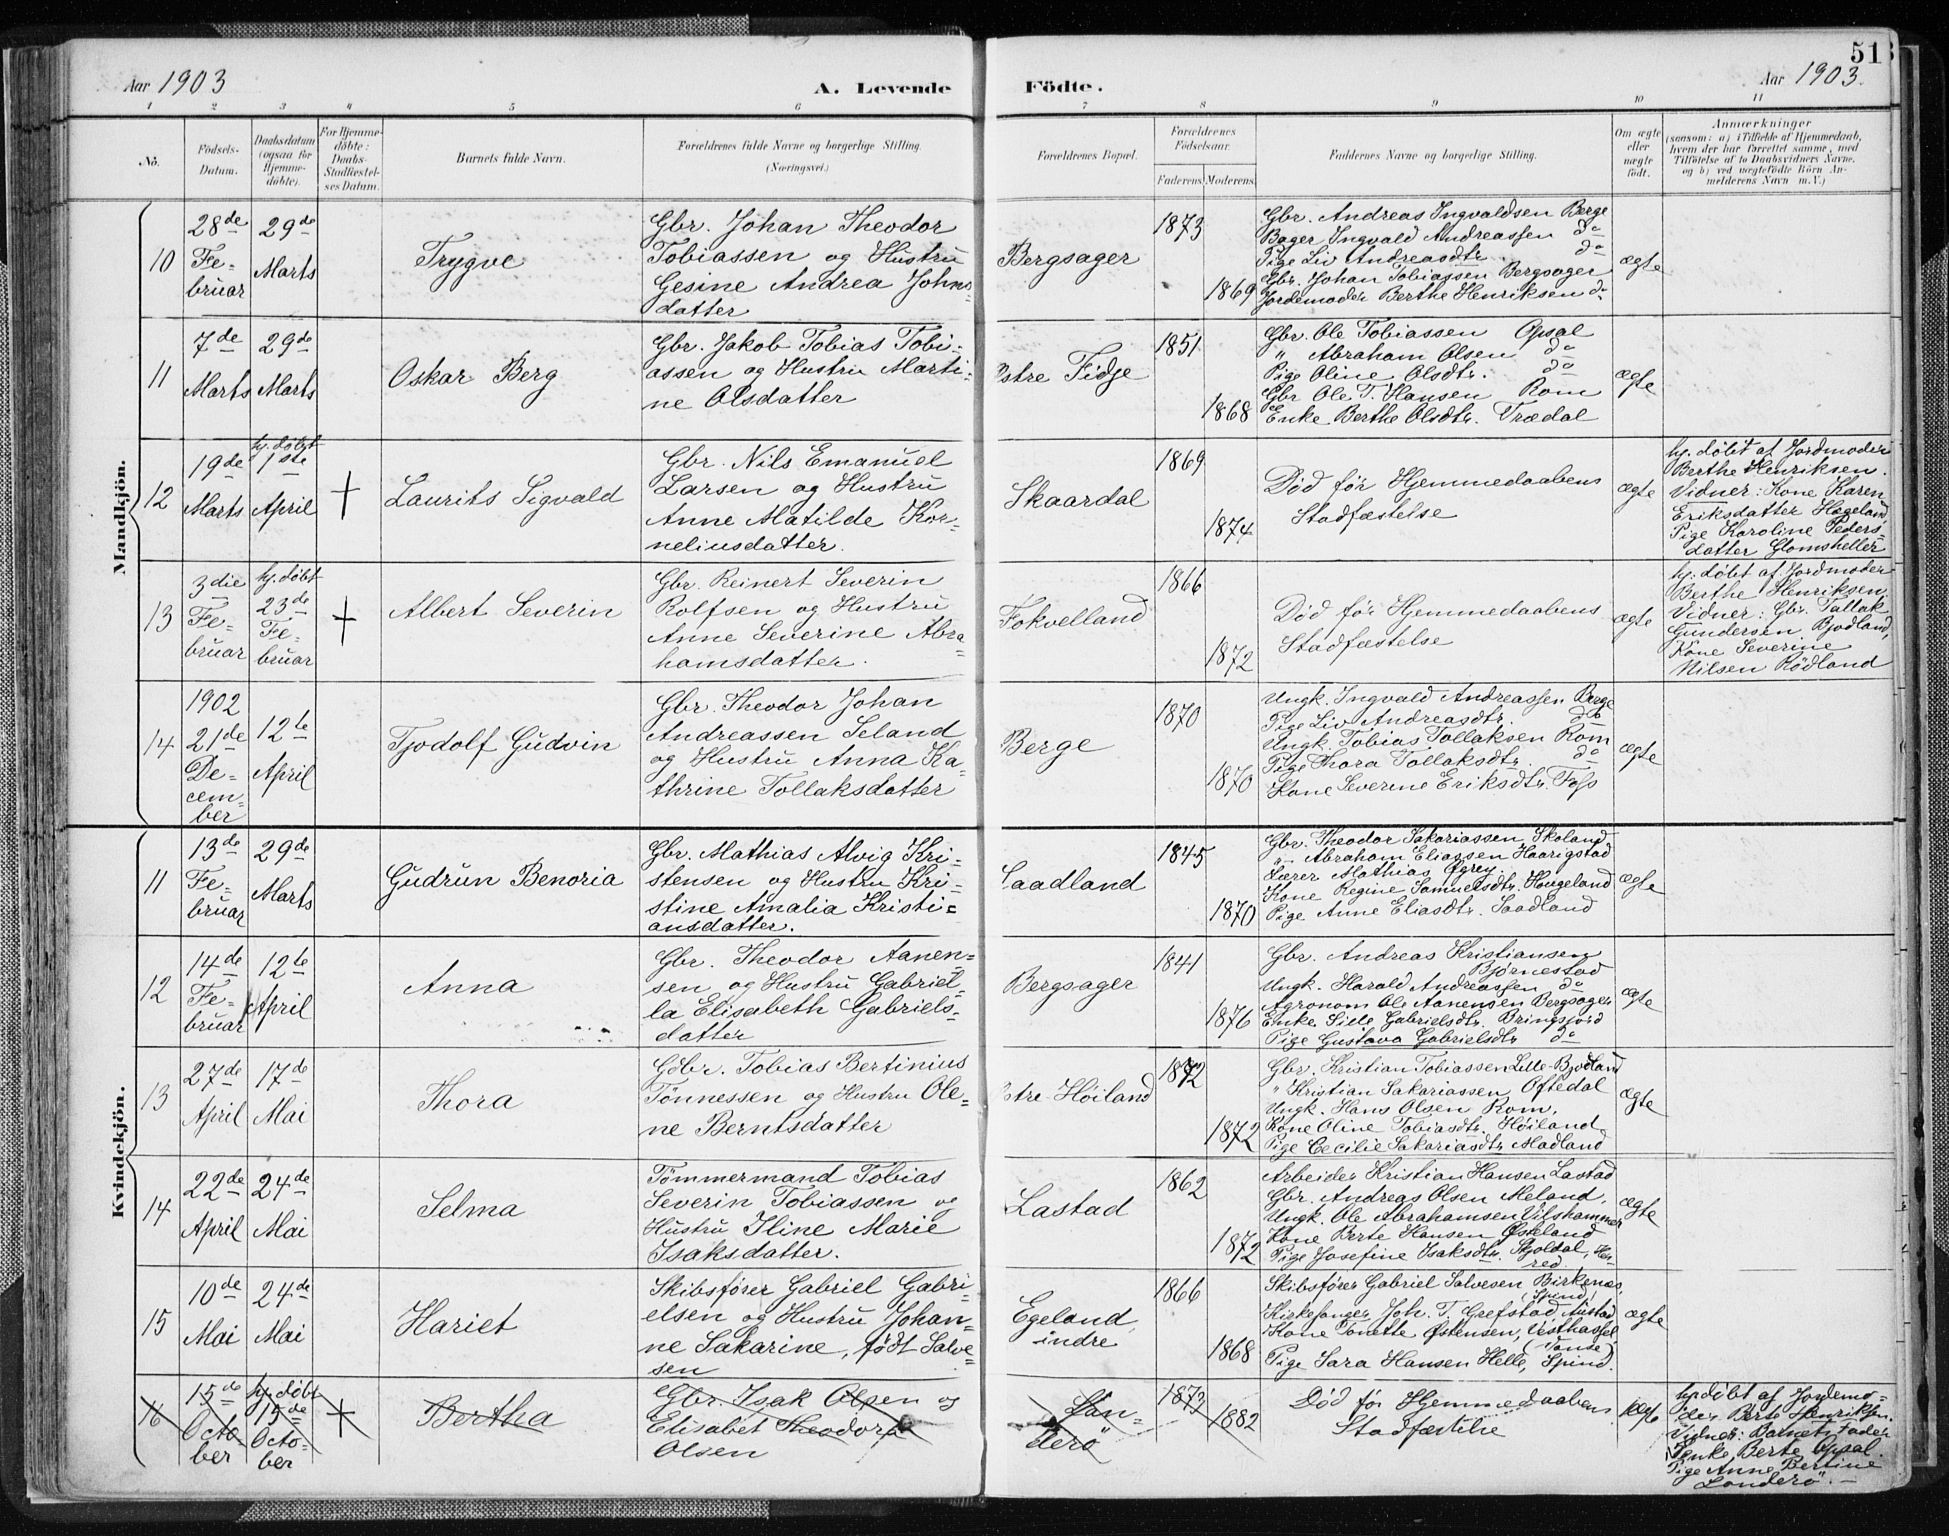 Aar 1903
A. Levende
Födte.
Aar 1903.
513
1 2 3 4 5 6 7 8 9 10 11
No.
Födsels-
Datum.
Daabsdatum
(ogsaa for
Hjemme-
döbte).
For Hjemme-
döbte:
Daabs-
Stadfæstel-
ses Datum.
Barnets fulde Navn.
Forældrenes fulde Navne og borgerlige Stilling.
(Næringsvei.)
Forældrenes Bopæl.
Forældrenes
Födselsaar.
Faderens. Moderens.
Faddernes Navne og borgerlige Stilling.
Om ægte
eller
uægte
födt.
Anmærkninger
(saasom: a) i Tilfælde af Hjemmedaab,
hvem der har forrettet samme, med
Tilföielse af to Daabsvidners Navne.
og b) ved uægtefödte Börn An-
melderens Navn m. V.)
Mandkjön.
10
28de
Fe-
bruar
29de
Marts
Trygve
Gbr. Johan Theodor
Tobiassen og Hustru
Gesine Andrea Johns-
datter
Bergsager
1873
1869
Gbr. Andreas Ingvaldsen Berge
Bager Ingvald Andreassen do
Pige Liv Andreasdtr. do
Gbr. Johan Tobiassen Bergsager
Jordemoder Berthe Henriksen do
ægte
11
7de
Marts
29de
Marts
Oskar Berg
Gbr. Jakob Tobias Tobi-
assen og Hustru Marti-
ne Olsdatter
Østre Fidje
1851
1868
Gbr. Ole Tobiassen Opsal
" Abraham Olsen do
Pige Oline Olsdtr. do
Gbr Ole T. Hansen Rom
Enke Berthe Olsdtr. Trædal
ægte
12
19de
Marts
hj. döbt
1ste
April
+
Laurits Sigvald
Gbr. Nils Emanuel
Larsen og Hustru
Anne Matilde Kor-
neliusdatter.
Skaardal
1869
1874
Död før Hjemmedaabens
Stadfæstelse
ægte
hj. döbt af Jordmoder
Berthe Henriksen.
Vidner: Kone Karen
Eriksdatter Hægeland,
Pige Karoline Peders-
datter Glomsheller
13
3die
Fe-
bruar
hj. döbt
23de
Fe-
bruar
+
Albert Severin
Gbr. Reinert Severin
Rolfsen og Hustru
Anne Severine Abra-
hamsdatter.
Fokvelland
1866
1872
Död før Hjemmedaabens
Stadfæstelse
ægte
hj. döbt af Jordmoder
Berthe Henriksen.
Vidner: Gbr. Tallak
Gundersen Bjodland,
Kone Severine
Nilsen Rödland
14
1902
21de
De-
cem-
ber
12te
April
Tjodolf Gudvin
Gbr. Theodor Johan
Andreassen Seland
og Hustru Anna Ka-
thrine Tollaksdatter
Berge
1870
1870
Ungk. Ingvald Andreassen Berge
Pige Liv Andreasdtr. do
Ungk. Tobias Tollaksen Rom
Pige Thora Tollaksdtr. do
Kone Severine Eriksdtr. Foss
ægte
Kvindekjön.
11
13de
Fe-
bruar
29de
Marts
Gudrun Benoria
Gbr. Mathias Alvig Kri-
stensen og Hustru Kri-
stine Amalia Kristi-
ansdatter.
Saadland
1845
1870
Gbr. Theodor Sakariassen Skoland
" Abraham Eliassen Haarigstad
Lærer Mathias Øgrey.
Kone Regine Samuelsdtr. Haugeland
Pige Anne Eliasdtr. Saadland
ægte
12
14de
Fe-
bruar
12te
April
Anna
Gbr. Theodor Aanen-
sen og Hustru Gabriel-
la Elisabeth Gabriels-
datter
Bergsager
1841
1876
Gbr. Andreas Kristiansen
Bjørnestad
Ungk. Harald Andreassen do
Agronom Ole Aanensen Bergsager
Enke Sille Gabrielsdtr. Bringsjord
Pige Gustava Gabrielsdtr do
ægte
13
27de
April
17de
Mai
Thora
Gbr. Tobias Bertinius
Tönnessen og Hustru Ole-
ne Berntsdatter
Østre Höiland
1872
1872
Gbr. Kristian Tobiassen Lille-Bjodland
" Kristian Sakariassen Oftedal
Ungk. Hans Olsen Rom,
Kone Oline Tobiasdtr. Höiland
Pige Cecilie Sakariasdtr Madland
ægte
14
22de
April
24de
Mai
Selma
Tömmermand Tobias
Severin Tobiassen og
Hustru Iline Marie
Isaksdatter.
Lastad
1862
1872
Arbeider Kristian Hansen Lastad
Gbr. Andreas Olsen Meland,
Ungk. Ole Abrahamsen Vilshammer
Kone Berte Hansen Øskland
Pige Josefine Isaksdtr. Skjoldal, Her-
red
ægte
15
10de
Mai
24de
Mai
Hariet
Skibsfører Gabriel Gabri-
elsen og Hustru Johan-
ne Sakarine, født Salve-
sen
Egeland,
indre
1866
1868
Skibsfører Gabriel Salvesen Birkenæs,
(Spind)
Kirkesanger Joh. T. Grefstad Austad
Kone Tonette Østensen, Vesthassel
(Vanse)
Pige Sara Hansen Helle, Spind.
ægte
16
15de
Octo-
ber
hj. døbt
15de
Octo-
ber
+
Bertha
Gbr. Isak Olsen og
Elisabet Theodora
Olsen
Lan-
derö
1873
1882
Död før Hjemmedaabens
Stadfæstelse
ægte
hj. döbt af Jordemo-
der Berte Henriksen.
Vidner: Barnets Fader
Enke Berte Opsal.
Pige Anne Bertine
Landerö.